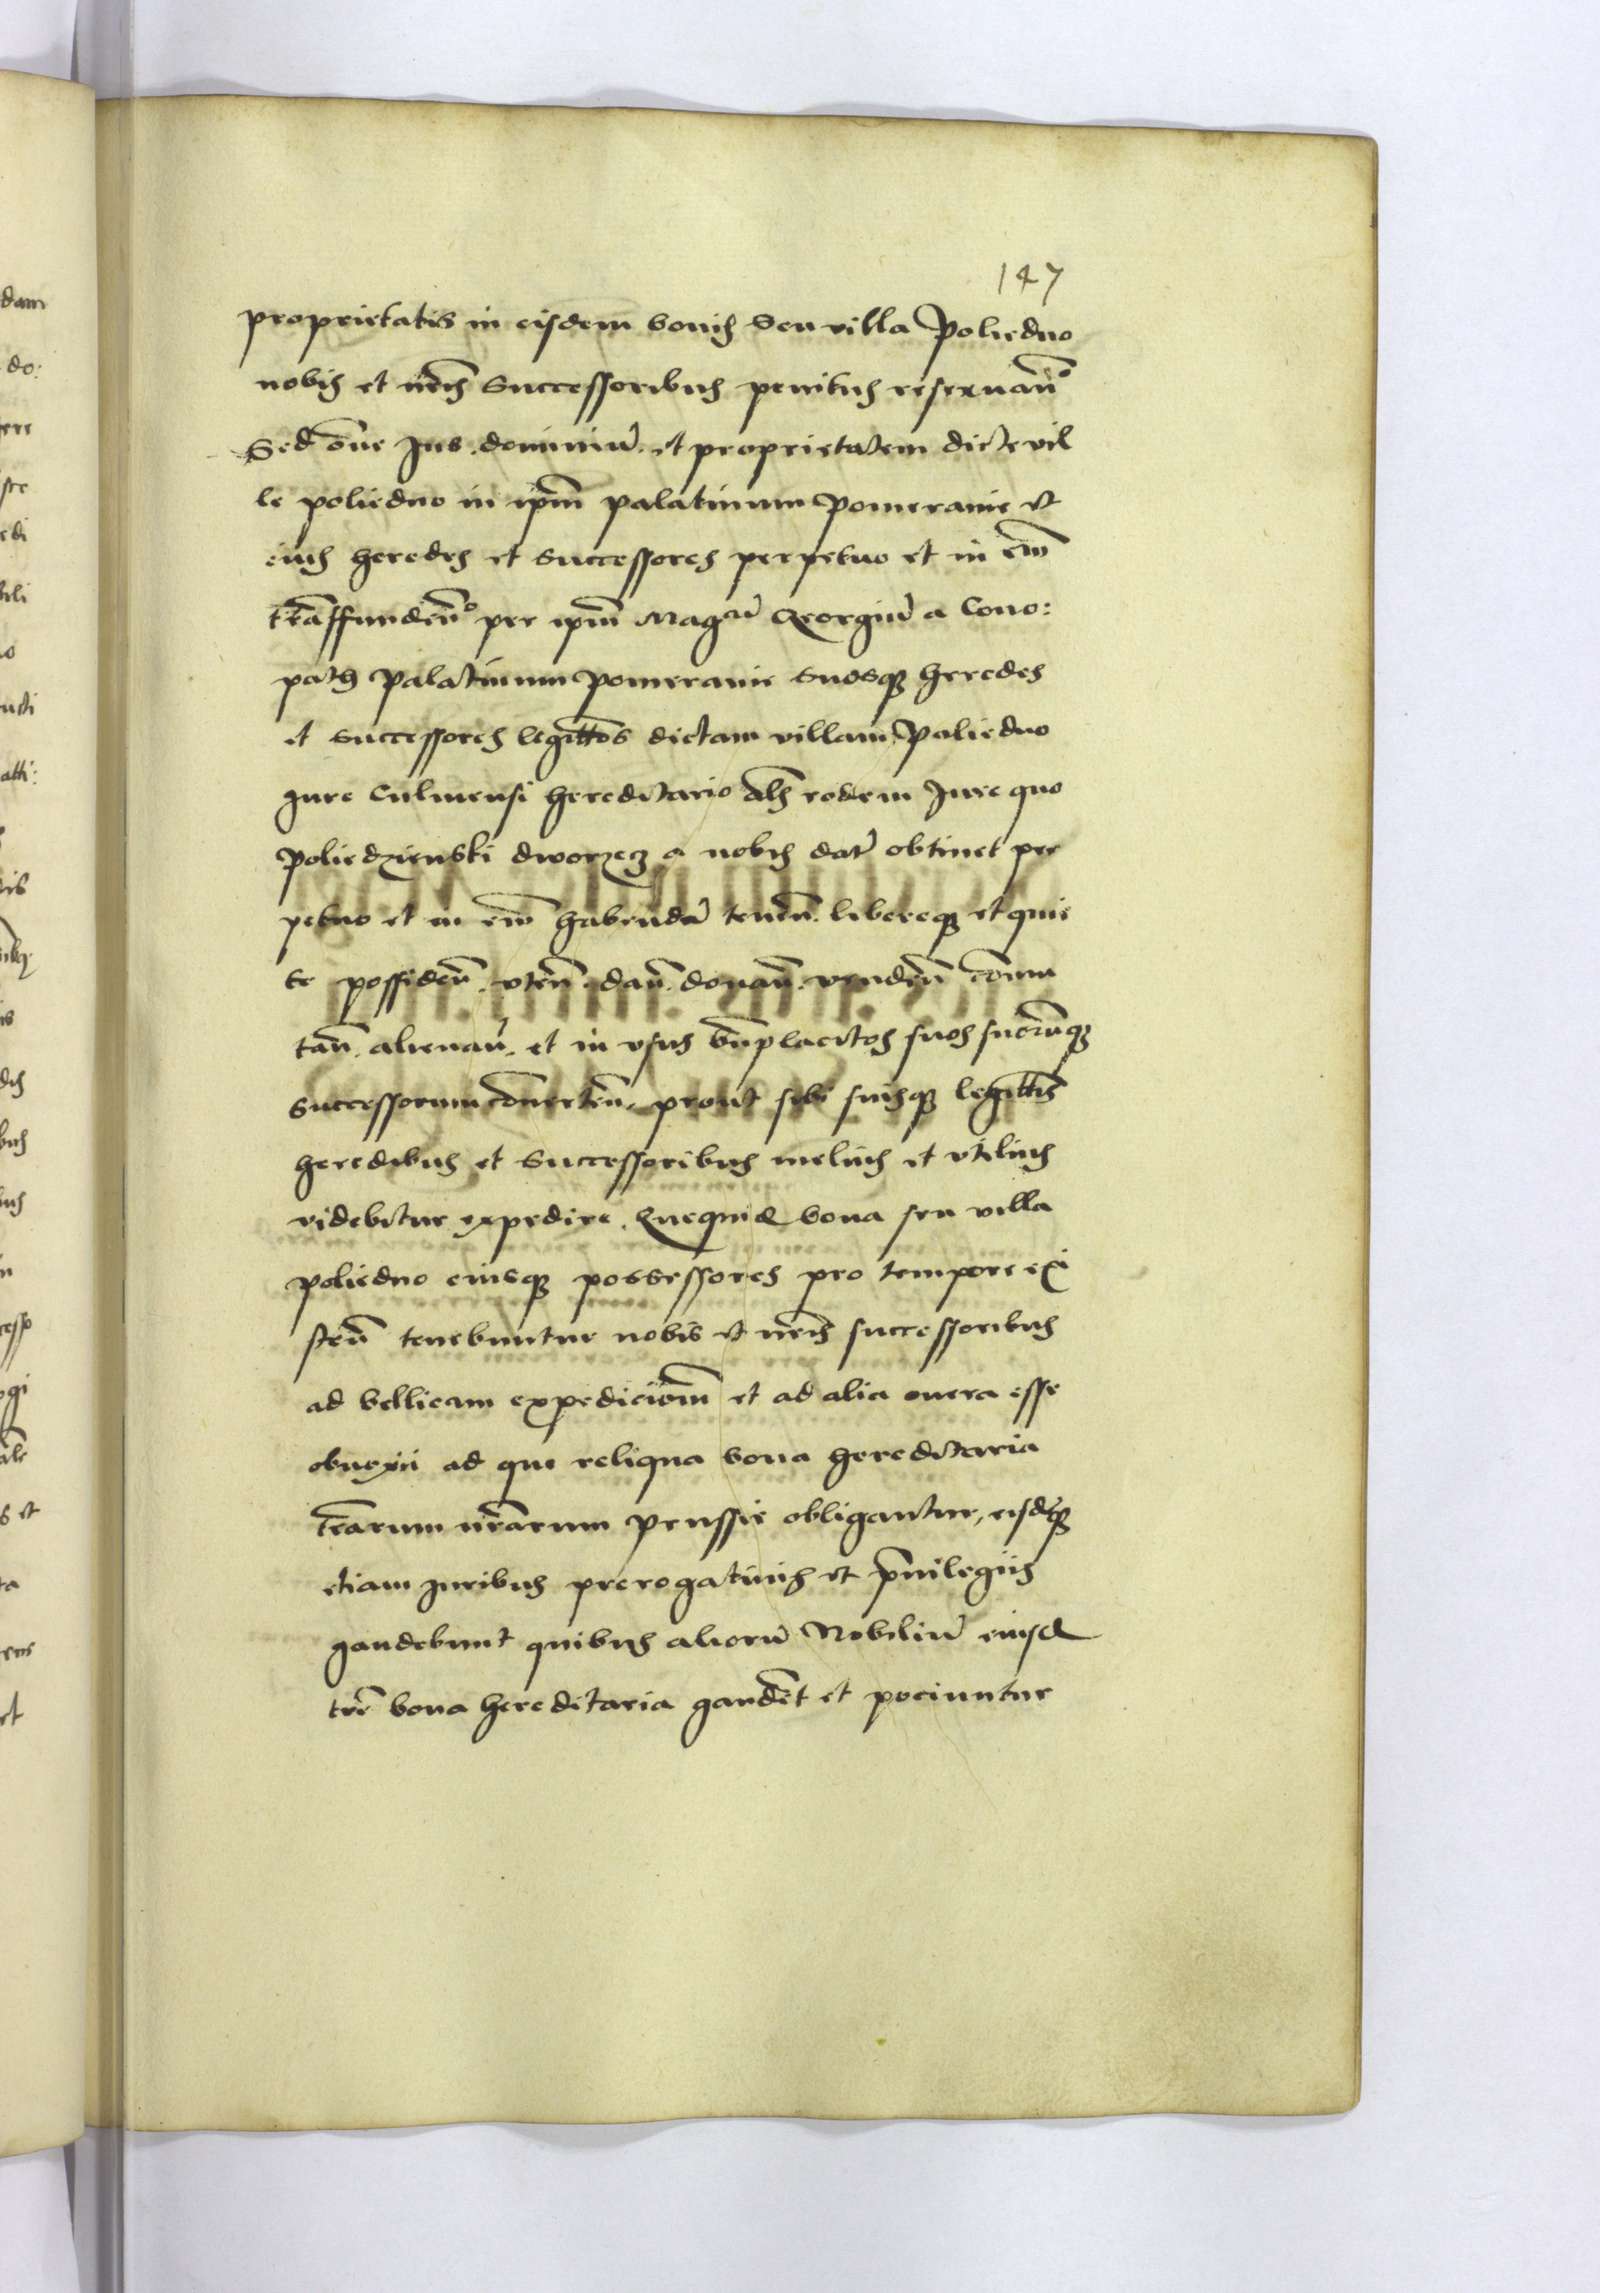 147
proprietatis in eisdem bonis Seu villa Poliedno
nobis et nr̃is Successoribus penitus reseruañ°
Sed om̃e Jus dominiũ et proprietatem dicte vil
le poliedno in ipm̃ palatinum Pomeranie et
eius heredes et successores perpetuo et in eũm
trãssfundeñ° per ipm̃ Magcũ Georgiũ a Cono:
path Palatinum Pomeranie suosq heredes
et successores legittĩos dictam villam Paliedno
Jure Culmensi hereditario al̃s eodem Jure quo
Poliedzienski dworzecz a nobis datũ obtinet per
petuo et in eũm habendũ teneñ. libereq et quie
te possideñ. vteñ. dañ. donañ. vendeñ com̃u
tañ. alienañ. et in vsus beñplacitos suos suorũq
successorum cõuerteñ. prout sibi suisq legittĩs
heredibus et Successoribus melius et vtilius
videbitur expedire. Quequid bona seu villa
poliedno eiusq possessores pro tempore exi
steñ tenebuntur nobis et nr̃is successoribus
ad bellicam expediciom̃ et ad alia onera esse
obnoxii ad que reliqua bona hereditaria
terr̃arum nr̃arum prussie obligantur, eisdẽq
etiam Juribus prerogatiuis et pr̃iuilegiis
gaudebunt quibus aliorũ Nobiliũ eiusd
trẽ bona hereditaria gaudẽt et pociuntur